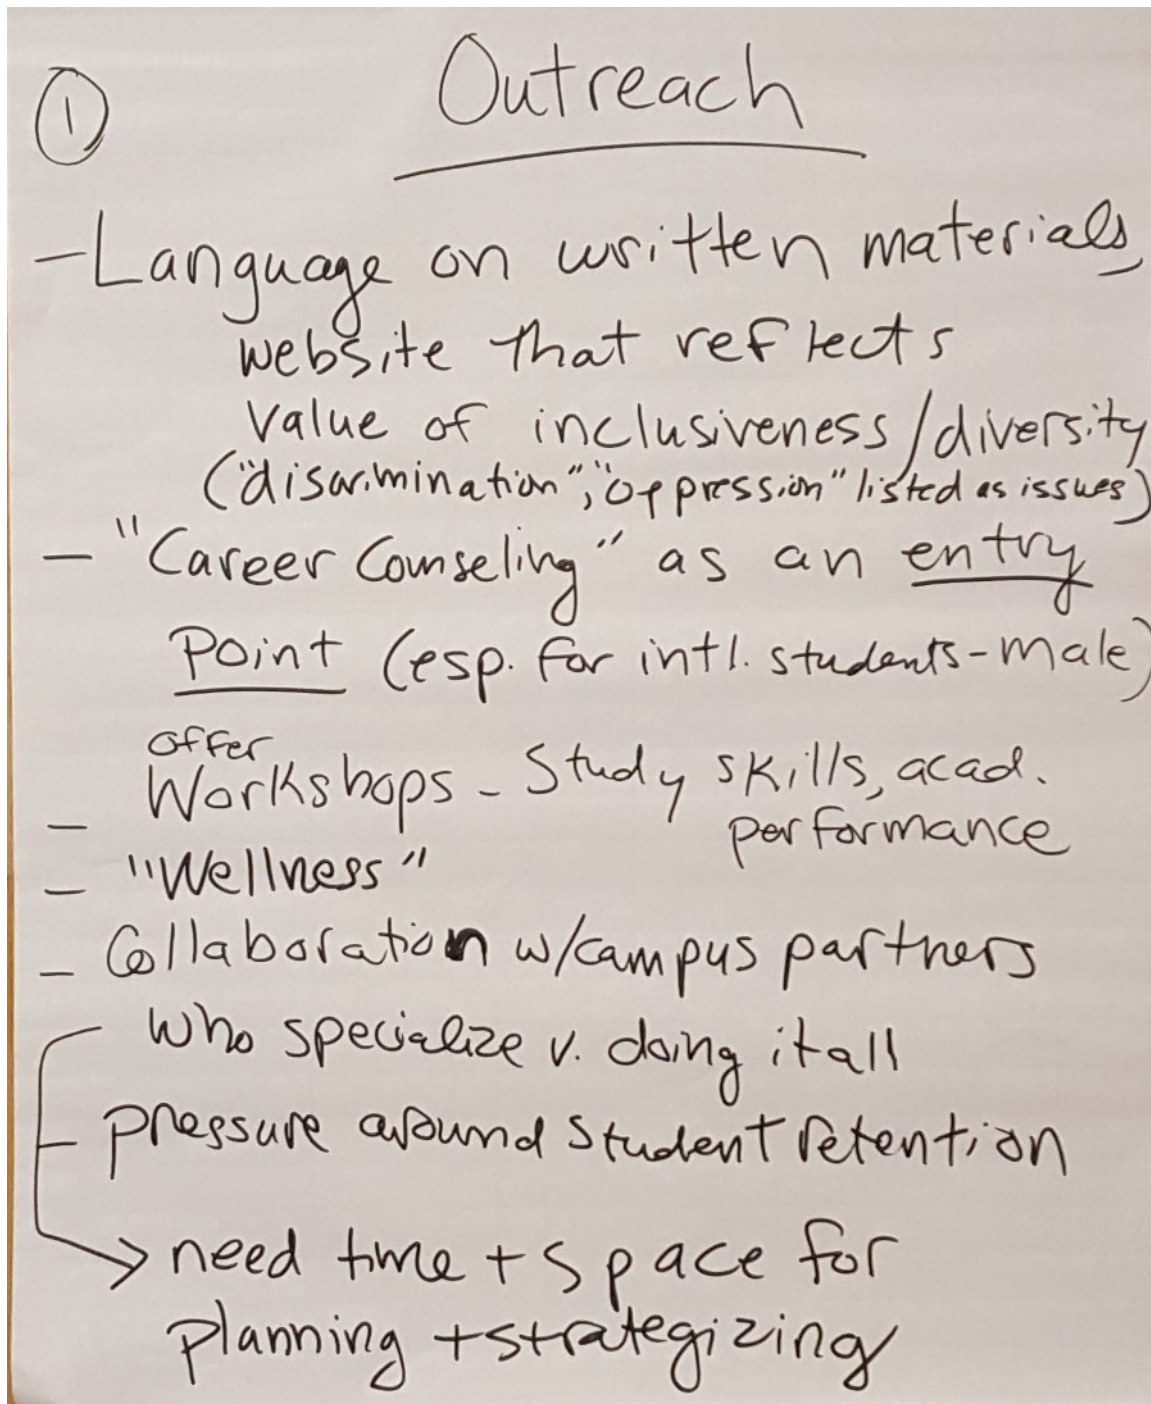 ① Outreach
- Language on written materials,
website that reflects
value of inclusiveness/diversity
("discrimination", "oppression" listed as issues)
- "Career Counseling" as an entry
point (esp. for intl. students - male)
offer
- Workshops - Study skills, acad.
performance
- "Wellness"
- Collaboration w/campus partners
who specialize v. doing it all
- pressure around student retention
→ need time + space for
planning + strategizing